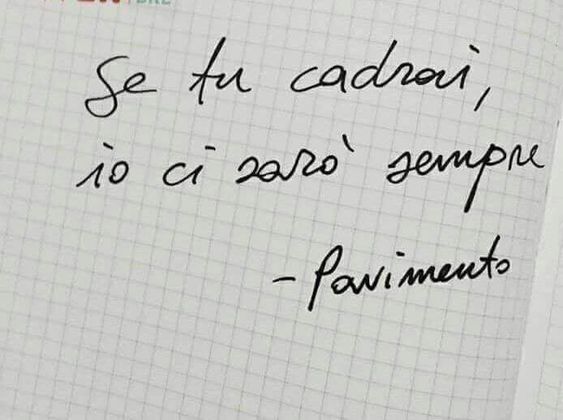 Se tu cadrai,
io ci sarò sempre
- Pavimento